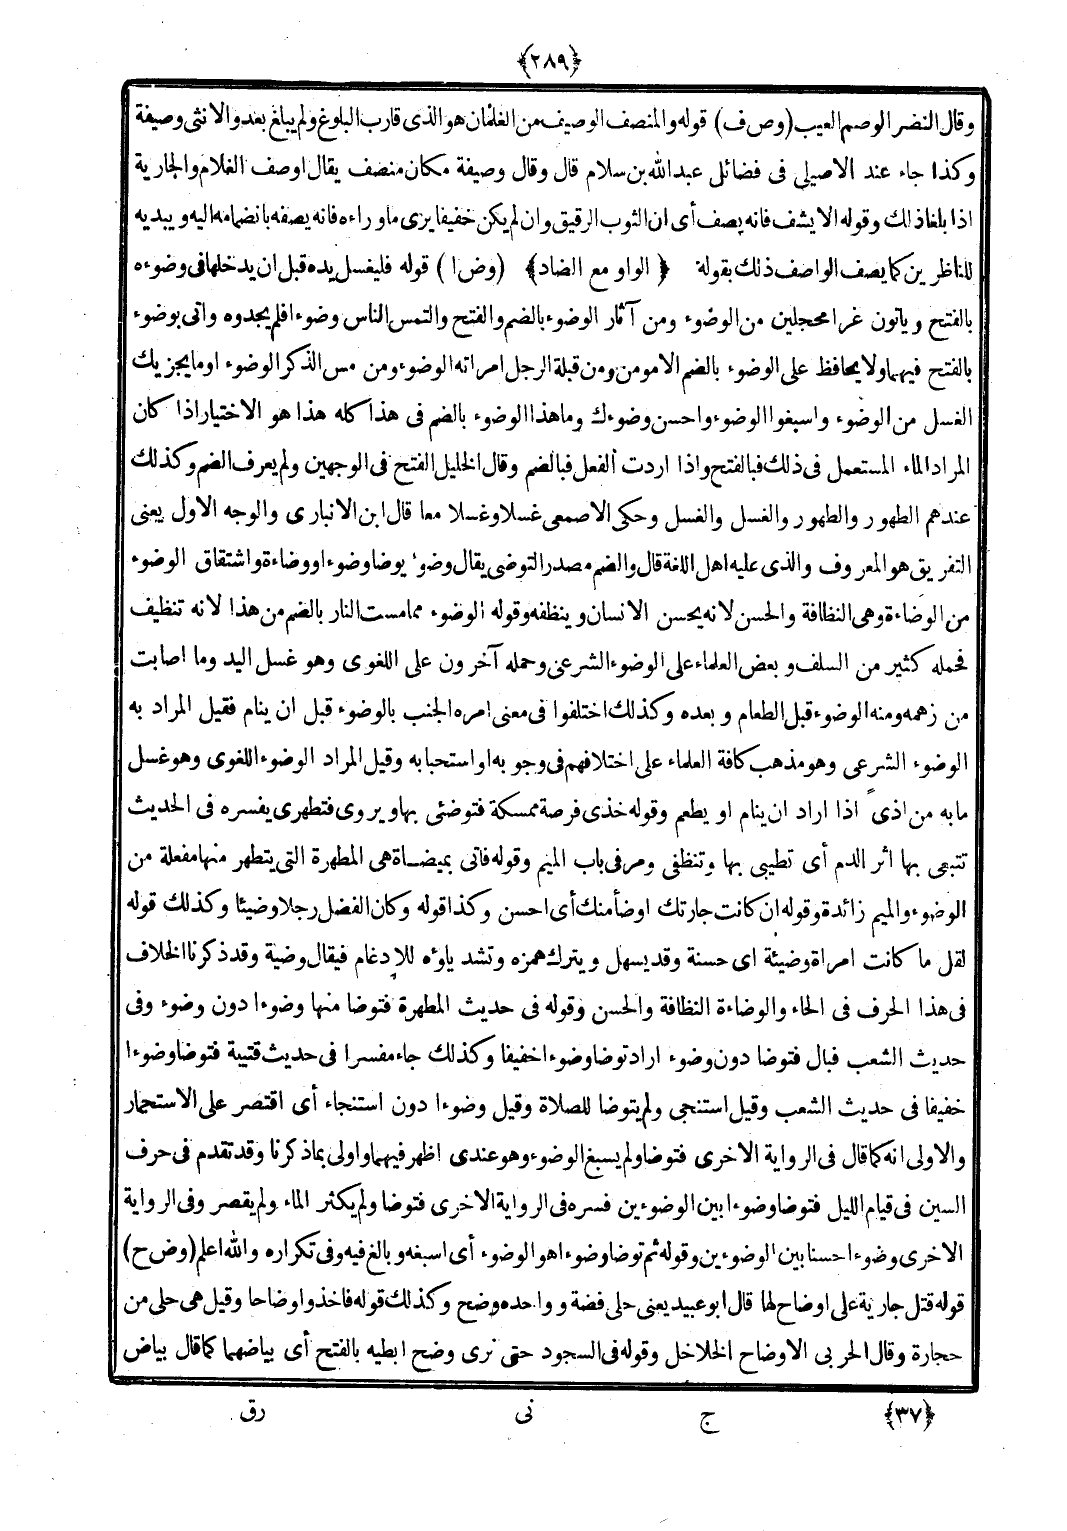 ﴿٢٨٩﴾
وقال النضر الوصم العيب (وص ف) قوله والمنصف الوصيف من الغلمان هو الذى قارب البلوغ ولم يبلغ بعد والانثى وصيفة
وكذا جاء عند الاصيلى فى فضائل عبد الله بن سلام قال وقال وصيفة مكان منصف يقال اوصف الغلام والجارية
اذا بلغا ذلك وقوله الا يشف فانه يصف أى ان الثوب الرقيق وان لم يكن خفيفا يرى ما وراءه فانه يصفه بانضمامه اليه ويبديه
للناظرين كما يصف الواصف ذلك بقوله ﴿ الواو مع الضاد﴾ (وض ا) قوله فليغسل يده قبل ان يدخلها فى وضوءه
بالفتح وياتون غرا محجلين من الوضوء ومن آثار الوضوء بالضم والفتح والتمس الناس وضوءا فلم يجدوه واتى بوضوء
بالفتح فيهما ولا يحافظ على الوضوء بالضم الا مومن ومن قبلة الرجل امراته الوضوء ومن مس الذكر الوضوء اوما يجزيك
الغسل من الوضوء واسبغوا الوضوء واحسن وضوءك وما هذا الوضوء بالضم فى هذا كله هذا هو الاختيار اذا كان
المراد الماء المستعمل فى ذلك فبالفتح واذا اردت الفعل فبالضم وقال الخليل الفتح فى الوجهين ولم يعرف الضم وكذلك
عندهم الطهور والطهور والغسل والغسل وحكى الاصمعى غسلا وغسلا معا قال ابن الانبارى والوجه الاول يعنى
التفريق هو المعروف والذى عليه اهل اللغة قال والضم مصدر التوضى يقال وضوء يوضا وضوءا ووضاءة واشتقاق الوضوء
من الوضاءة وهى النظافة والحسن لانه يحسن الانسان وينظفه وقوله الوضوء مما مست النار بالضم من هذا لانه تنظيف
فحمله كثير من السلف وبعض العلماء على الوضوء الشرعى وحمله آخرون على اللغوى وهو غسل اليد وما اصابت
من زهمه ومنه الوضوء قبل الطعام وبعده وكذلك اختلفوا فى معنى امره الجنب بالوضوء قبل ان ينام فقيل المراد به
الوضوء الشرعى وهو مذهب كافة العلماء على اختلافهم فى وجوبه او استحبابه وقيل المراد الوضوء اللغوى وهو غسل
ما به من اذىً اذا اراد ان ينام او يطعم وقوله خذى فرصة ممسكة فتوضئى بها ويروى فتطهرى يفسره فى الحديث
تتبعى بها اثر الدم أى تطيبى بها وتنظفى ومر فى باب الميم وقوله فاتى بميضاة هى المطهرة التى يتطهر منها مفعلة من
الوضوء والميم زائدة وقوله ان كانت جارتك اوضأ منك أى احسن وكذا قوله وكان الفضل رجلا وضيئا وكذلك قوله
لقل ما كانت امراة وضيئة اى حسنة وقد يسهل ويترك همزه وتشد ياؤه للادغام فيقال وضية وقد ذكرنا الخلاف
فى هذا الحرف فى الحاء والوضاءة النظافة والحسن وقوله فى حديث المطهرة فتوضا منها وضوءا دون وضوء وفى
حديث الشعب فبال فتوضا دون وضوء اراد توضا وضوءا خفيفا وكذلك جاء مفسرا فى حديث قتيبة فتوضا وضوءا
خفيفا فى حديث الشعب وقيل استنجى ولم يتوضا للصلاة وقيل وضوءا دون استنجاء أى اقتصر على الاستجمار
والاولى انه كما قال فى الرواية الاخرى فتوضا ولم يسبغ الوضوء وهو عندى اظهر فيهما واولى بما ذكرنا وقد تقدم فى حرف
السين فى قيام الليل فتوضا وضوءا بين الوضوءين فسره فى الرواية الاخرى فتوضا ولم يكثر الماء ولم يقصر وفى الرواية
الاخرى وضوءا حسنا بين الوضوءين وقوله ثم توضا وضوءا هو الوضوء أى اسبغه وبالغ فيه وفى تكراره والله اعلم (وض ح)
قوله قتل جارية على اوضاح لها قال ابو عبيد يعنى حلى فضة وواحده وضح وكذلك قوله فاخذ اوضاحا وقيل هى حلى من
حجارة وقال الحربى الاوضاح الخلاخل وقوله فى السجود حتى نرى وضح ابطيه بالفتح أى بياضهما كما قال بياض
﴿٣٧﴾ ج نى رق